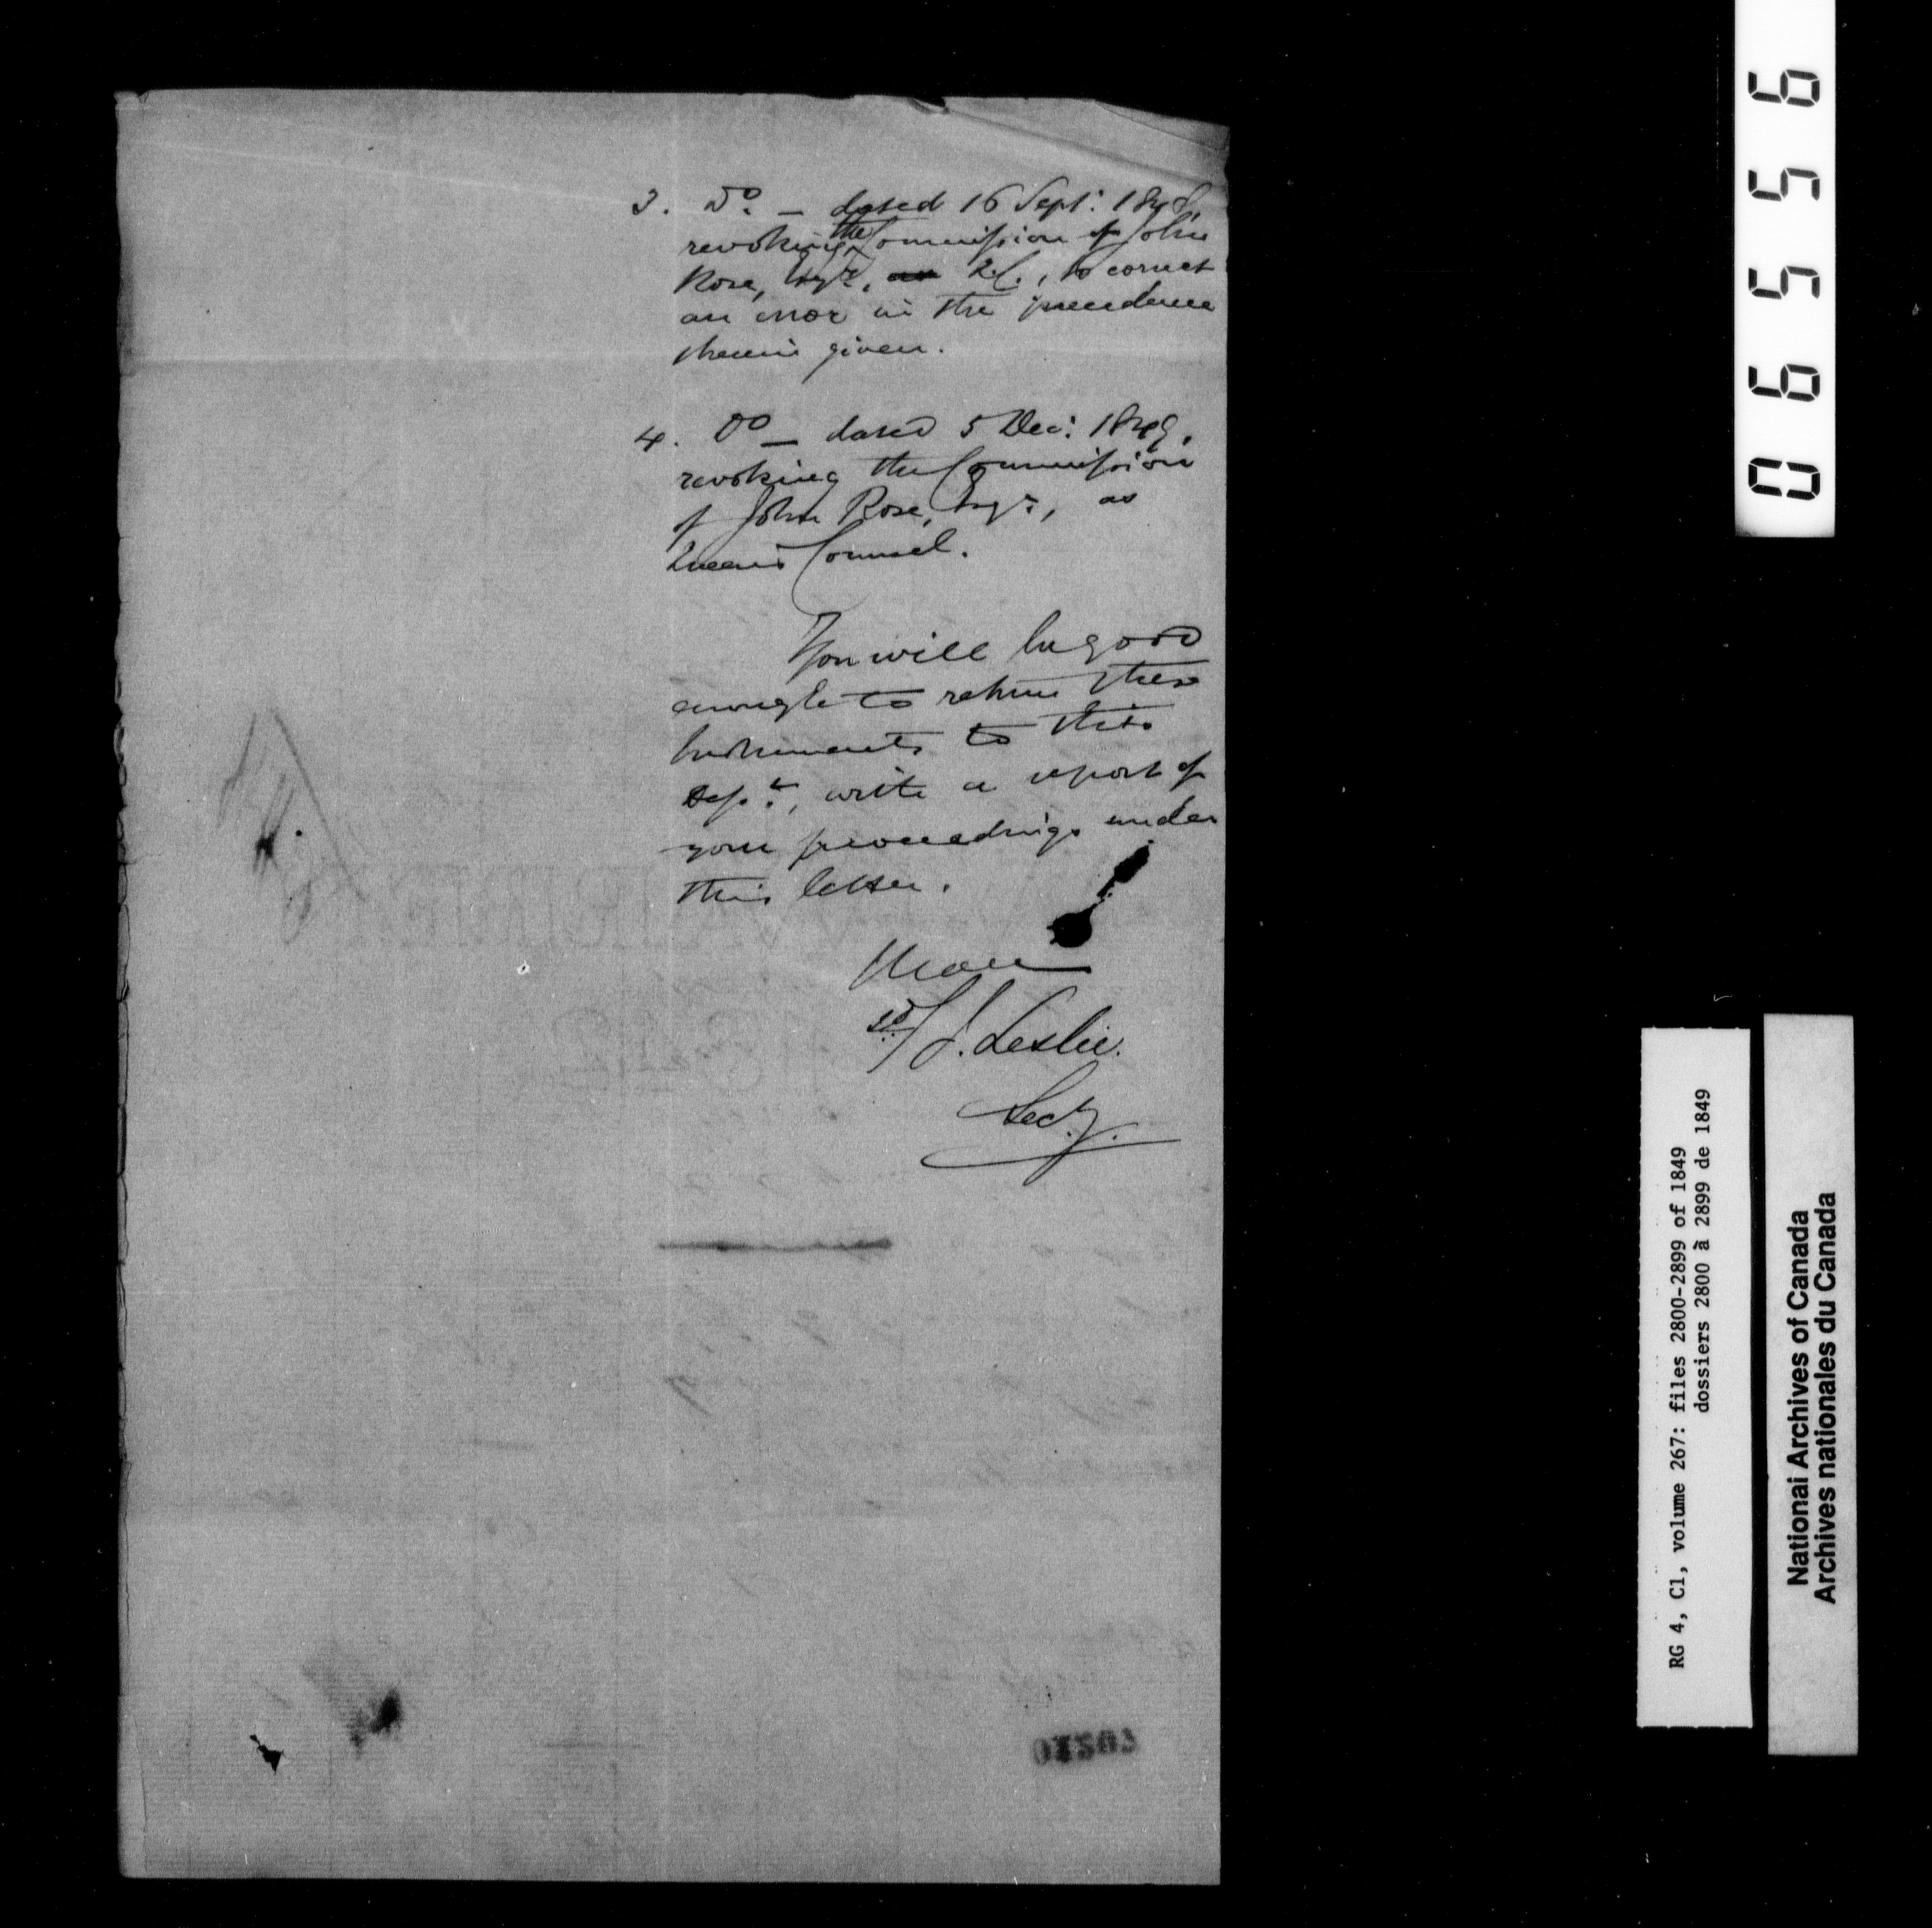 3. Do. — dated 16 Sept: 1848,
revoking the Commission of John
Rose, Esqr., Q.C., to correct
an error in the precedence
therein given.
4. Do — dated 5 Dec: 1849,
revoking the Commission
of John Rose, Esqr., as
Queen's Counsel.
You will be good
enough to return these
Instruments to this
Dept., with a report of
your proceedings under
this letter.
I have
sd/ J. Leslie.
Secy.
01503
065596
RG 4, C1, volume 267: files 2800-2899 of 1849
dossiers 2800 à 2899 de 1849
National Archives of Canada
Archives nationales du Canada